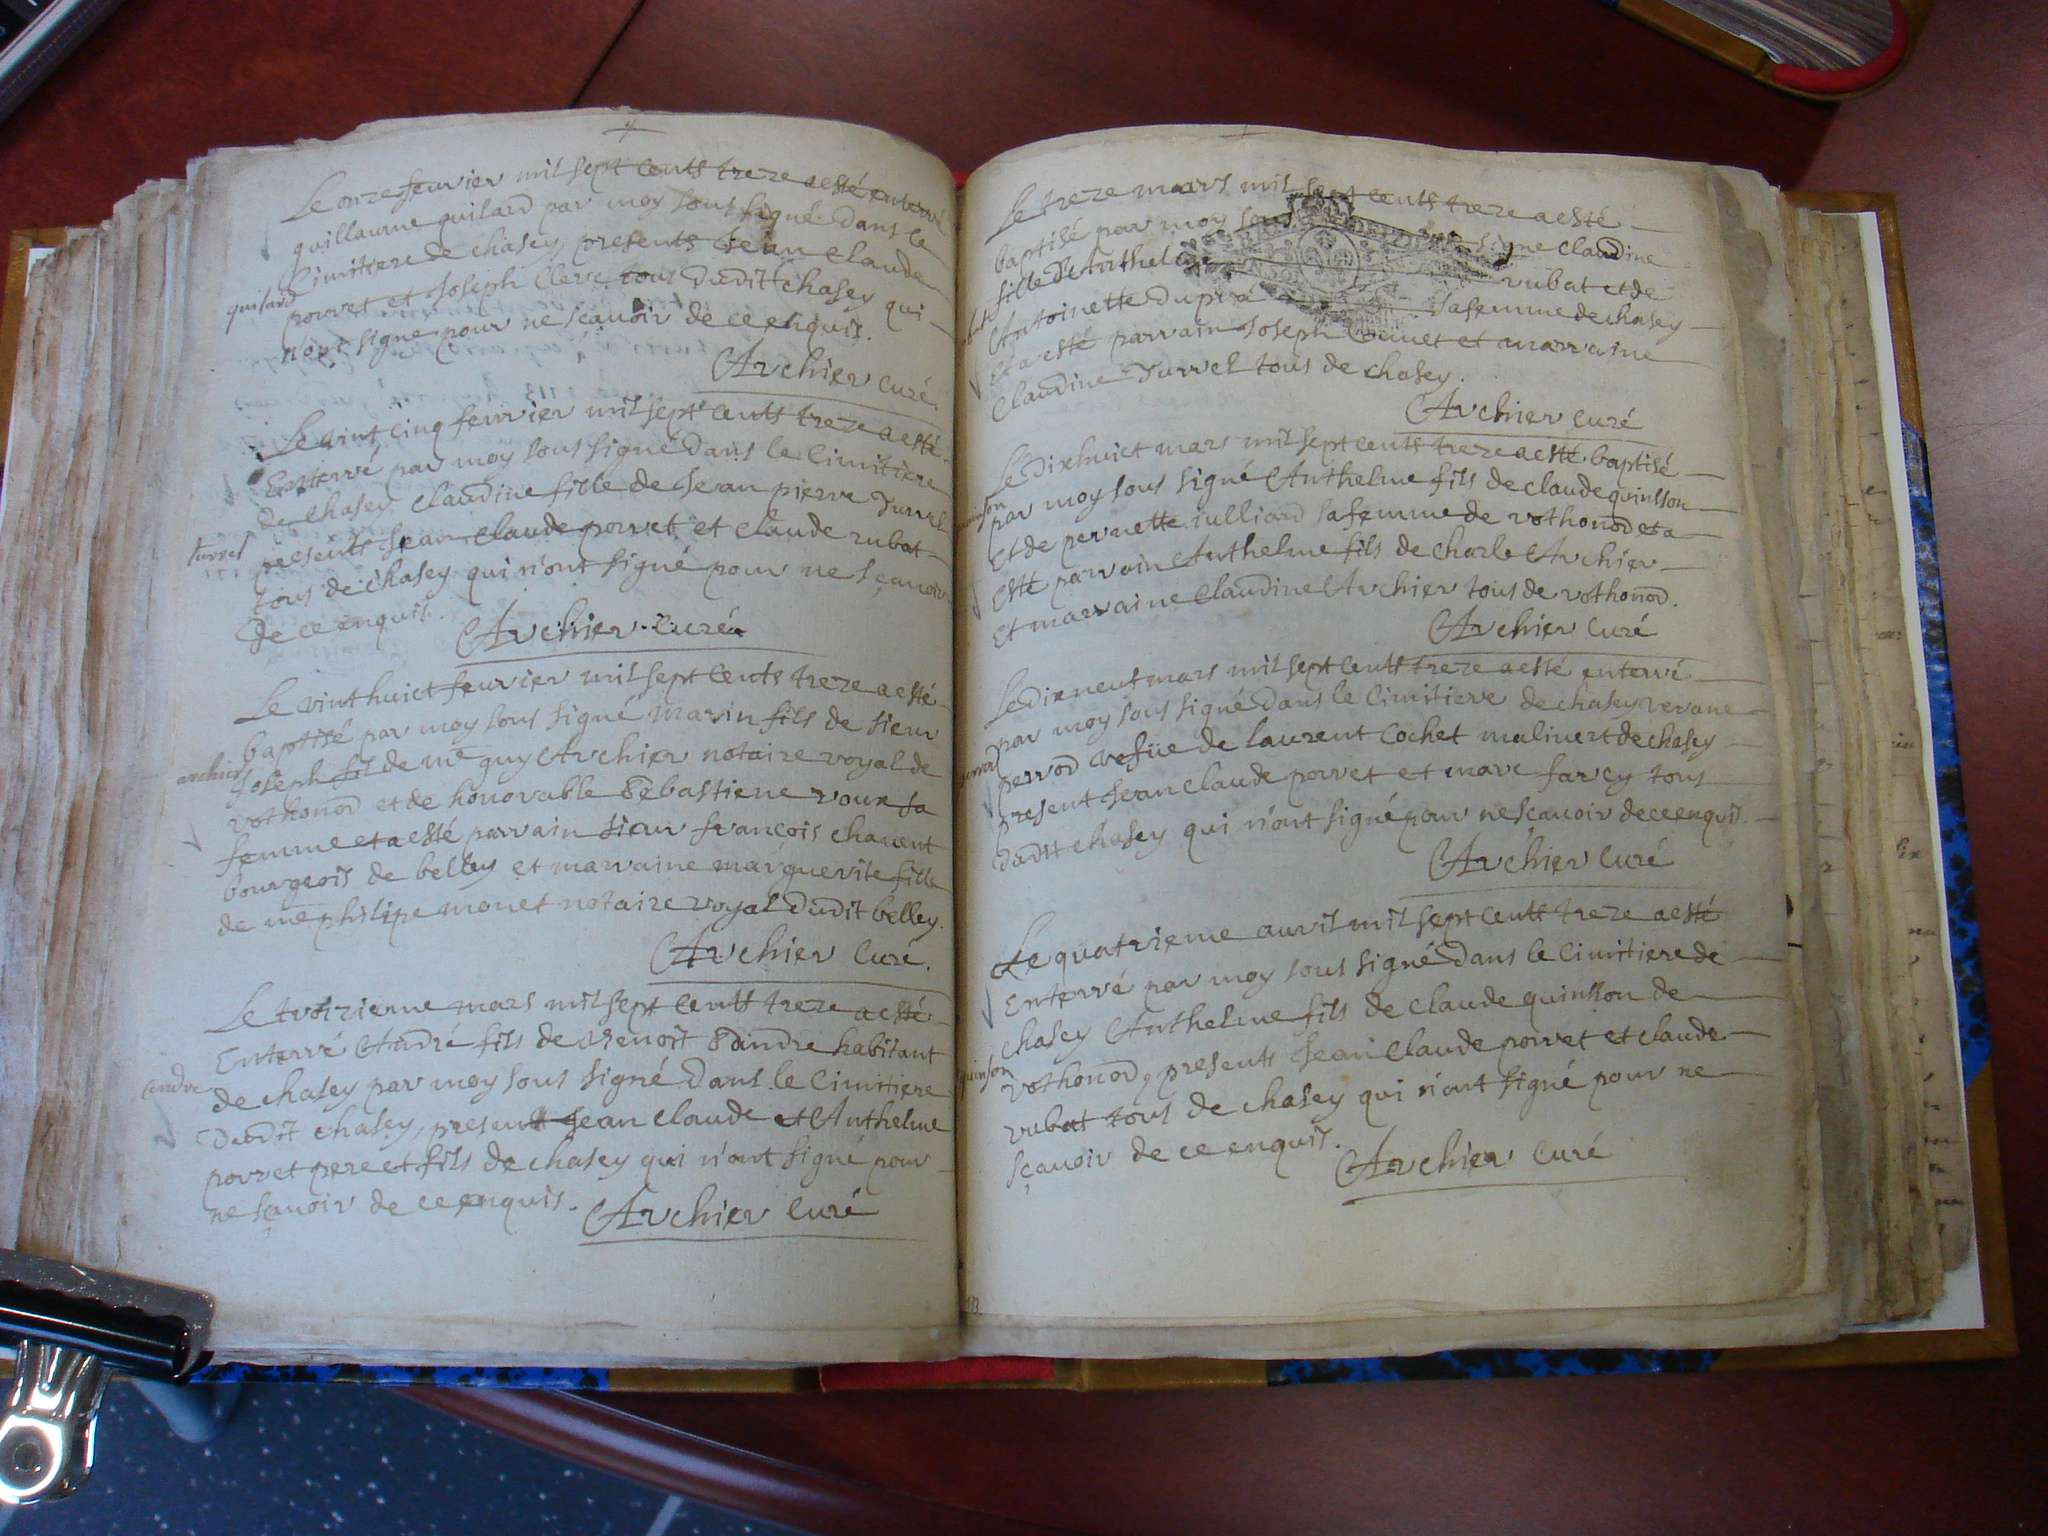 Le onze feuvrier mil sept cents treze a esté enterré
guillaume guilard par moy sous signé dans le
Cimitiere de chasey, presents Jean Claude
guilard
porret et Joseph Clerc tous dudit chasey qui
n'ont signé pour ne sçauoir de ce enquis.
Archier curé.
Le vint cinq feuvrier mil sept cents treze a esté
Enterré par moy sous signé dans le Cimitiere
de chasey Claudine fille de Jean pierre Turrel
turrel
presents Jean claude porret et Claude rubat
tous de chasey qui n'ont signé pour ne sçauoir
de ce enquis.
Archier curé
Le vint huict feuvrier mil sept cents treze a esté
baptisé par moy sous signé marin fils de sieur
archier
Joseph fil de me guy Archier notaire royal de
vothonod et de honorable Sebastiene roux sa
femme et a esté parrain sieur françois chauent
bourgeois de belley et marraine marguerite fille
de me philipe monet notaire royal dudit belley.
Archier Curé.
Le troizieme mars mil sept cents treze a esté
Enterré André fils de Benoit Sandre habitant
de chasey par moy sous signé dans le Cimitiere
dudit chasey, present Jean claude et Anthelme
porret pere et fils de chasey qui n'ont signé pour
ne sçauoir de ce enquis.
Archier Curé
Le treze mars mil sept cents treze a esté
baptisé par moy sous signe claudine
fille de Anthelme rubat et de
Antoinette dupra sa femme de chasey
et a esté parrain Joseph et marraine
Claudine Turrel tous de chasey.
Archier curé
Le dixhuict mars mil sept cents treze a esté baptisé
par moy sous signé Anthelme fils de claude quinsson
et de pernette iulliard sa femme de vothonod et a
esté parrain Anthelme fils de charle Archier
et marraine Claudine Archier tous de vothonod.
Archier Curé
Le dixneuf mars mil sept cents treze a esté enterré
par moy sous signé dans le Cimitiere de chasey
perrod vefue de laurent Cochet maliuert de chasey
present Jean claude porret et marc farcy tous
dudit chasey qui n'ont signé pour ne scauoir de ce enquis.
Archier Curé
Le quatrieme auril mil sept cents treze a esté
Enterré par moy sous signé dans le Cimitiere de
chasey Anthelme fils de claude quinsson de
quinson
vothonod, presents Jean Claude porret et claude
rubat tous de chasey qui n'ont signé pour ne
sçauoir de ce enquis.
Archier Curé